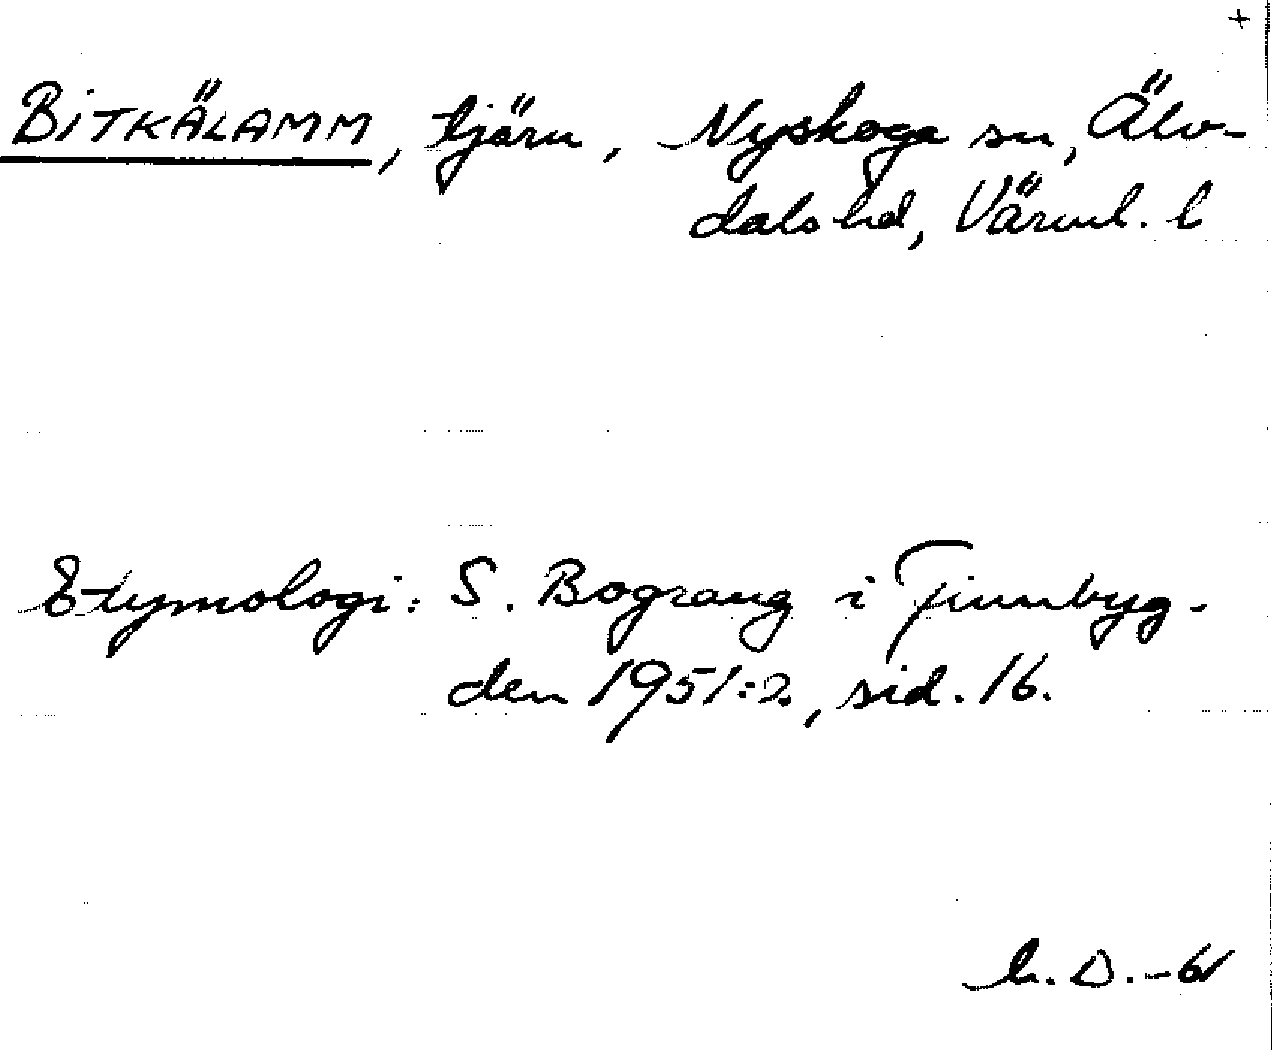 +
BITKÄLAMM, tjärn, Nyskoga sn, Älv-
dals hd, Värml. l
Etymologi: S. Bograng i Finnbyg-
den 1951:2, sid. 16.
D. -61